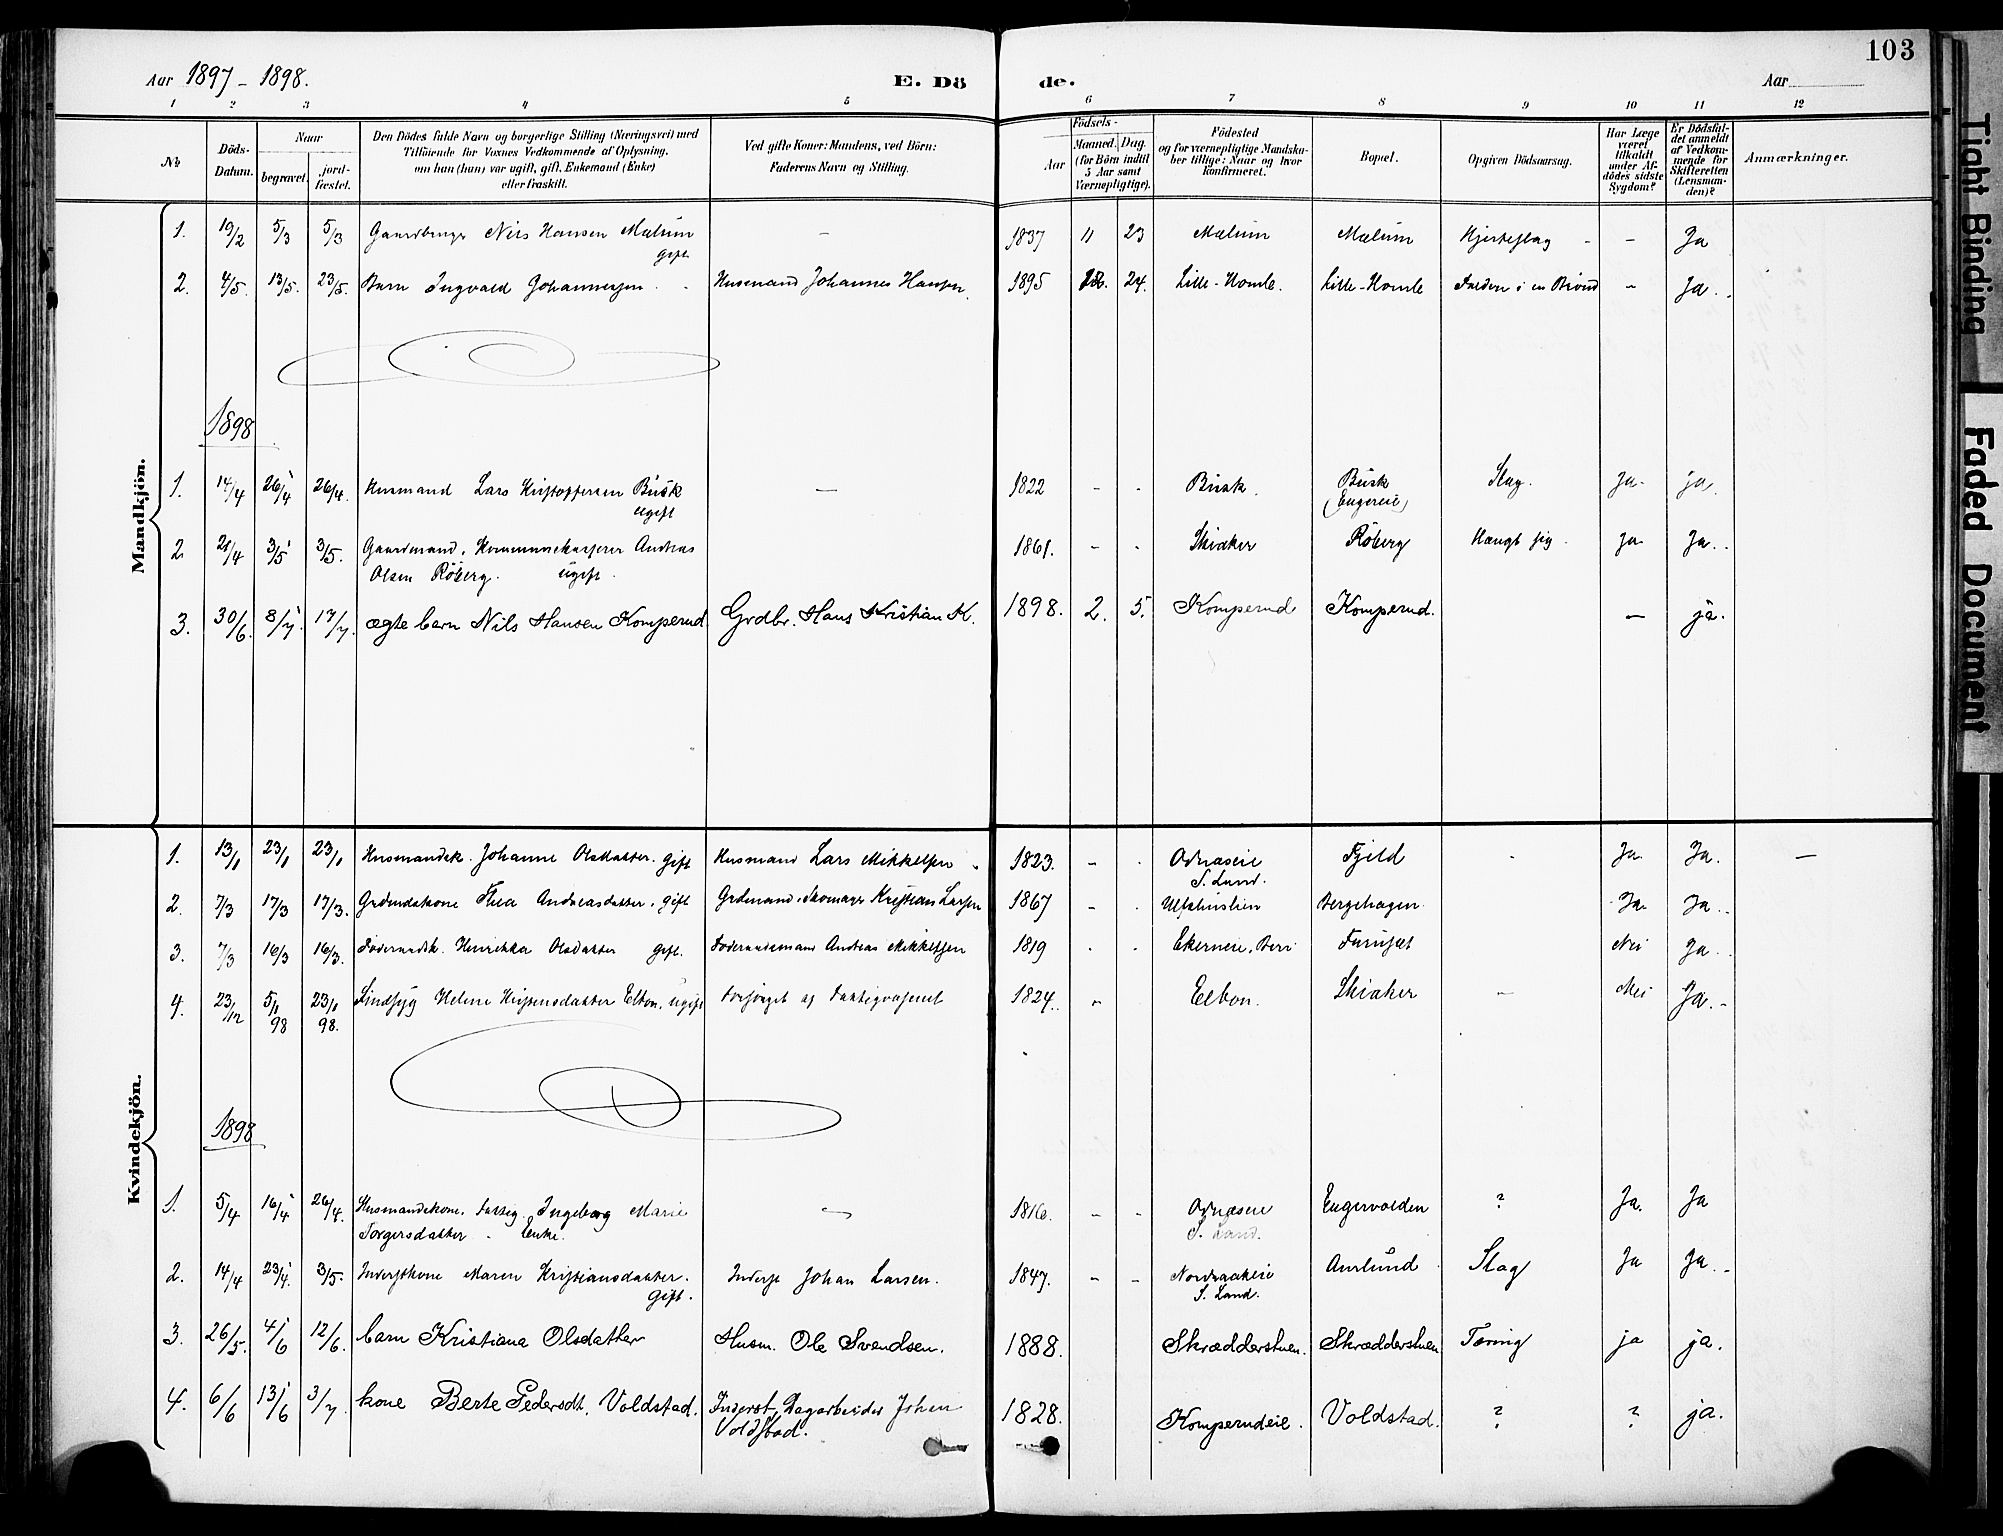 103
Aar 1897 - 1898.
E. Dö de.
Aar
1 2 3 4 5 6 7 8 9 10 11 12
No
Döds-Datum.
Naar
begravet.
jord-fæstet.
Den Dödes fulde Navn og borgerlige Stilling (Næringsvei) med
Tilföiende for Voxnes Vedkommende af Oplysning,
om han (hun) var ugift, gift, Enkemand (Enke)
eller fraskilt.
Ved gifte Koner: Mandens, ved Börn:
Faderens Navn og Stilling.
Födsels-
Aar
Maaned. Dag.
(for Börn indtil
5 Aar samt
Værnepligtige).
Födested
og for værnepligtige Mandska-
ber tillige: Naar og hvor
konfirmeret.
Bopæl.
Opgiven Dödsaarsag.
Har Læge
været
tilkaldt
under Af-
dödes sidste
Sygdom?
Er Dödsfal-
det anmeldt
af Vedkom-
mende for
Skifteretten
(Lensman-
den)?
Anmærkninger.
Mandkjön.
1. 19/2 5/3 5/3 Gaardbruger Nils Hansen Mælum - 1837 11 23 Mælum Mælum Hjerteslag - - Ja
gift
2. 4/5. 13/5. 23/5. Barn Ingvald Johannessen Husmand Johannes Hansen 1895 24. Lille-Homle. Lille-Homle Falden i en Brönd - Ja.
1898
1. 14/4 26/4 26/4. Husmand Lars Kristoffersen Busk - 1822 - - Busk. Busk Slag. Ja. ja.
ugift (Engereie)
2 3/5 3/5. Gaardmand, Kommunekasserer Andreas 1861. - - Skiaker Röberg Hængt sig. Ja Ja.
Olsen Röberg. ugift.
3. 30/6. 8/7 17/7. ægte barn Nils Hansen Komperud. Grdbr. Hans Kristian K. 1898. 2. 5. Komperud Komperud. - ja.
Kvindekjön.
1. 13/1 23/1 23/1 Husmandsk. Johanne Olsdatter. gift Husmand Lars Mikkelsen 1823. - - Odnæseie Fjeld - Ja. Ja. -
S. Land.
2. 7/3 17/3 17/3. Grdmdskone Thea Andreasdatter. gift Grdmand, Skomager Kristian Larsen 1867 - . Bergehagen Ja. Ja.
3. 7/3 16/3 16/3. Föderaadsk. Henrikka Olsdatter gift. Föderaadsmand Andreas Mikkelsen 1819 . . Ekerneie, Furuset Nei Ja.
4. 23/12 5/1 98 23/1 98. Sindssyg Helene Kristensdatter Elton. ugift Forsörget af Fattigvæsenet 1824. - Elton. Skiaker - Nei Ja. -
1898
1. 5/4 16/4 26/4. Husmandskone, Fattig. Ingeborg Marie - 1816. - - Odnæseie Engervolden ? Ja. Ja
Torgersdatter - Enke. S. Land.
2. 14/4 23/4. 3/5. Inderstkone Maren Kristiansdatter. Inderst Johan Larsen. 1847. - - Nordraakeie Aurlund Slag Ja Ja. -
Gift. S. Land.
3. 26/5. 4/6 12/6. barn Kristiana Olsdatter Husm. Ole Svendsen. 1888. Skrædderstuen. Skrædderstuen Tæring ja ja.
4. 6/6 13/6 3/7. kone Berte Pedersdt. Voldstad. Inderst, Dagarbeider Johan 1828. Komperudeie. Voldstad. ? ? ja.
Voldstad.
Tight Binding
Faded Document